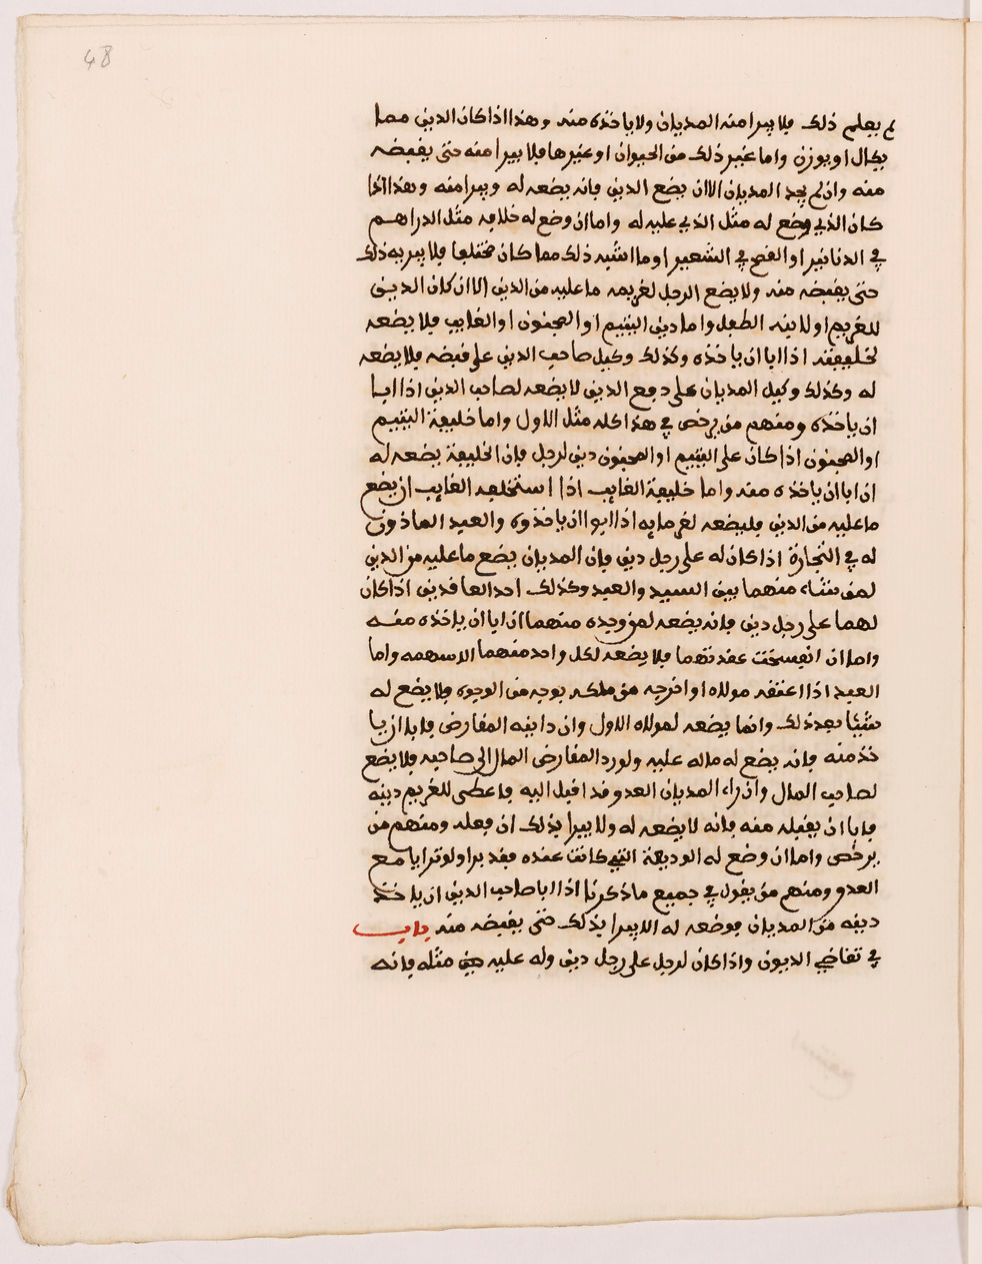 48
لم يعلم ذلك فلا يبرا منه المديان ولا ياخذه منه وهذا اذا كان الدين مما
يكال او يوزن واما غير ذلك من الحيوان او غيرها فلا يبرا منه حتى يقبضه
منه وان لم يجد المديان الا ان يضع الدين فانه يضعه له ويبرا منه وهذا اذا
كان الذي وضع له مثل الذي عليه له واما ان وضع له خلافه مثل الدراهم
في الدنانير او القمح في الشعير او ما اشبه ذلك مما كان مختلفا فلا يبر به ذلك
حتى يقبضه منه ولا يضع الرجل لغريمه ما عليه من الدين الا ان كان الدين
للغريم او لابنه الطفل واما دين اليتيم او المجنون او الغايب فلا يضعه
لخليفته اذا ابا ان ياخذه وكذلك وكيل صاحب الدين على قبضه فلا يضعه
له وكذلك وكيل المديان على دفع الدين لا يضعه لصاحب الدين اذا ابا
ان ياخذه ومنهم من يرخص في هذا كله مثل الاول واما خليفة اليتيم
او المجنون اذا كان على اليتيم او المجنون دين لرجل فان الخليفة يضعه له
ان ابا ان ياخذه منه واما خليفة الغايب اذا استخلفه الغايب ان يضع
ما عليه من الدين فليضعه لغرمايه اذا ابوا ان ياخذوه والعبد الماذون
له في التجارة اذا كان له على رجل دين فان المديان يضع ما عليه من الدين
لمن شاء منهما بين السيد والعبد وكذلك احد العاقدين اذا كان
لهما على رجل دين فانه يضعه لمن وجده منهما ان ابا ان ياخذه منه
واما ان انفسخت عقدتهما فلا يضعه لكل واحد منهما الا سهمه واما
العبد اذا اعتقه مولاه او اخرجه من ملكه بوجه من الوجوه فلا يضع له
شيئا بعد ذلك وانما يضعه لمولاه الاول وان داينه المقارض فابا ان يا
خذ منه فانه يضع له ماله عليه ولو رد المقارض المال الى صاحبه فلا يضع
لصاحب المال وان راء المديان العدو قد اقبل اليه فاعطى للغريم دينه
فابا ان يقبله منه فانه لا يضعه له ولا يبرا بذلك ان فعله ومنهم من
يرخص واما ان وضع له الوديعة التي كانت عنده فقد برا ولو ترايا مع
العدو ومنهم من يقول في جميع ما ذكرنا اذا ابا صاحب الدين ان ياخذ
دينه من المديان فوضعه له الا يبرا بذلك حتى يقبضه منه باب
في تقاضي الديون واذا كان لرجل على رجل دين وله عليه مثله فانه